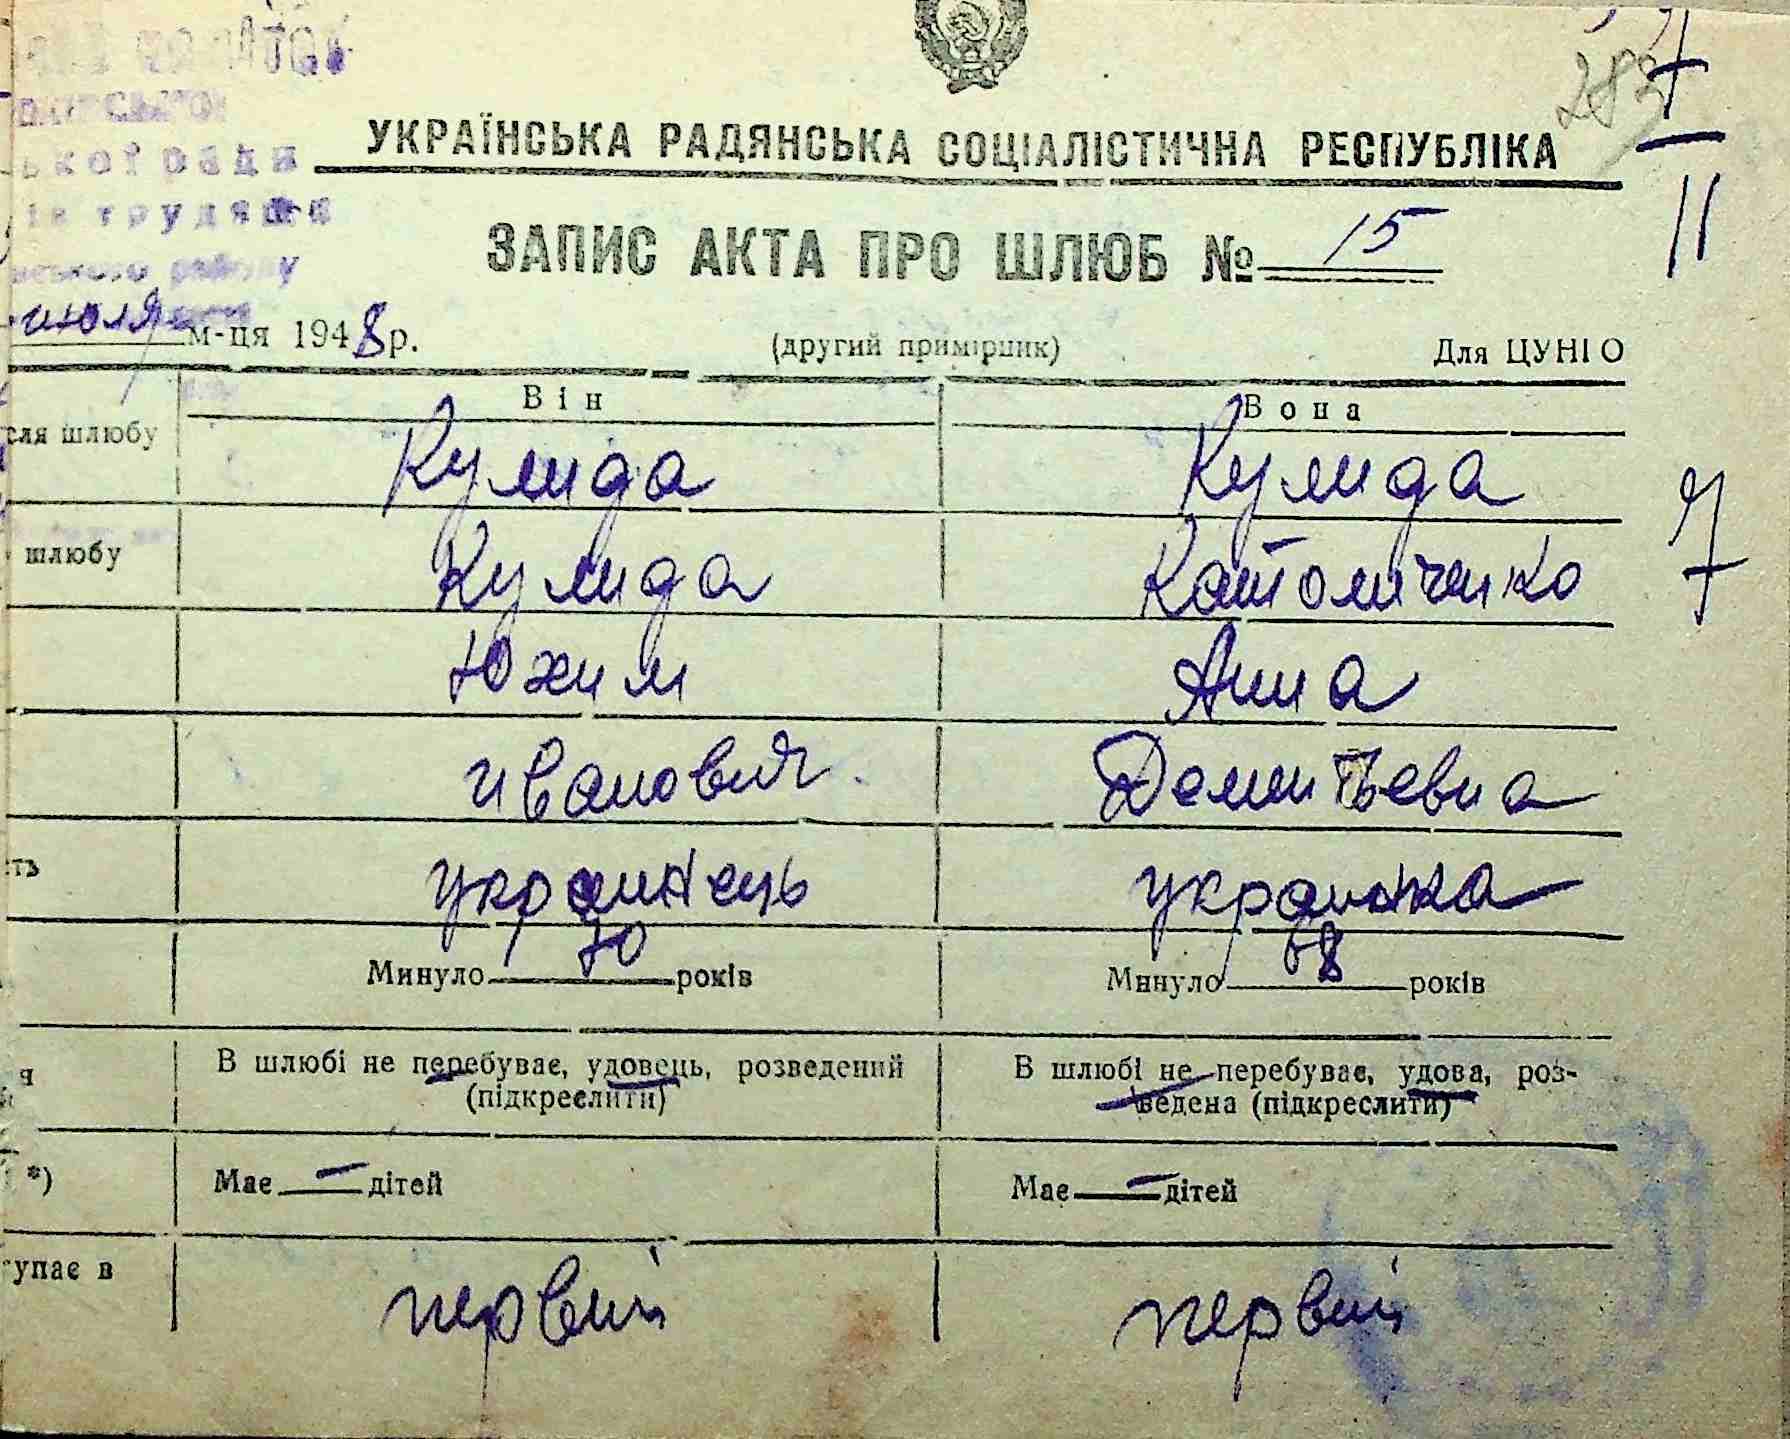 283
УКРАЇНСЬКА РАДЯНСЬКА СОЦІАЛІСТИЧНА РЕСПУБЛІКА
ької ради
ів трудящи
ського району
ЗАПИС АКТА ПРО ШЛЮБ № 15
11
июля м-ця 1948 р.
(другий примірник)
Для ЦУНІО
Він Вона
сля шлюбу Кулида Кулида
шлюбу Кулида Катомченко
7
Юхим Анна
иванович Дементьевна
сть украинець украинка
Минуло 70 років Минуло 68 років
я В шлюбі не перебуває, удовець, розведений (підкреслити) В шлюбі не перебуває, удова, роз-
ведена (підкреслити)
*) Має — дітей Має — дітей
упає в первий первий